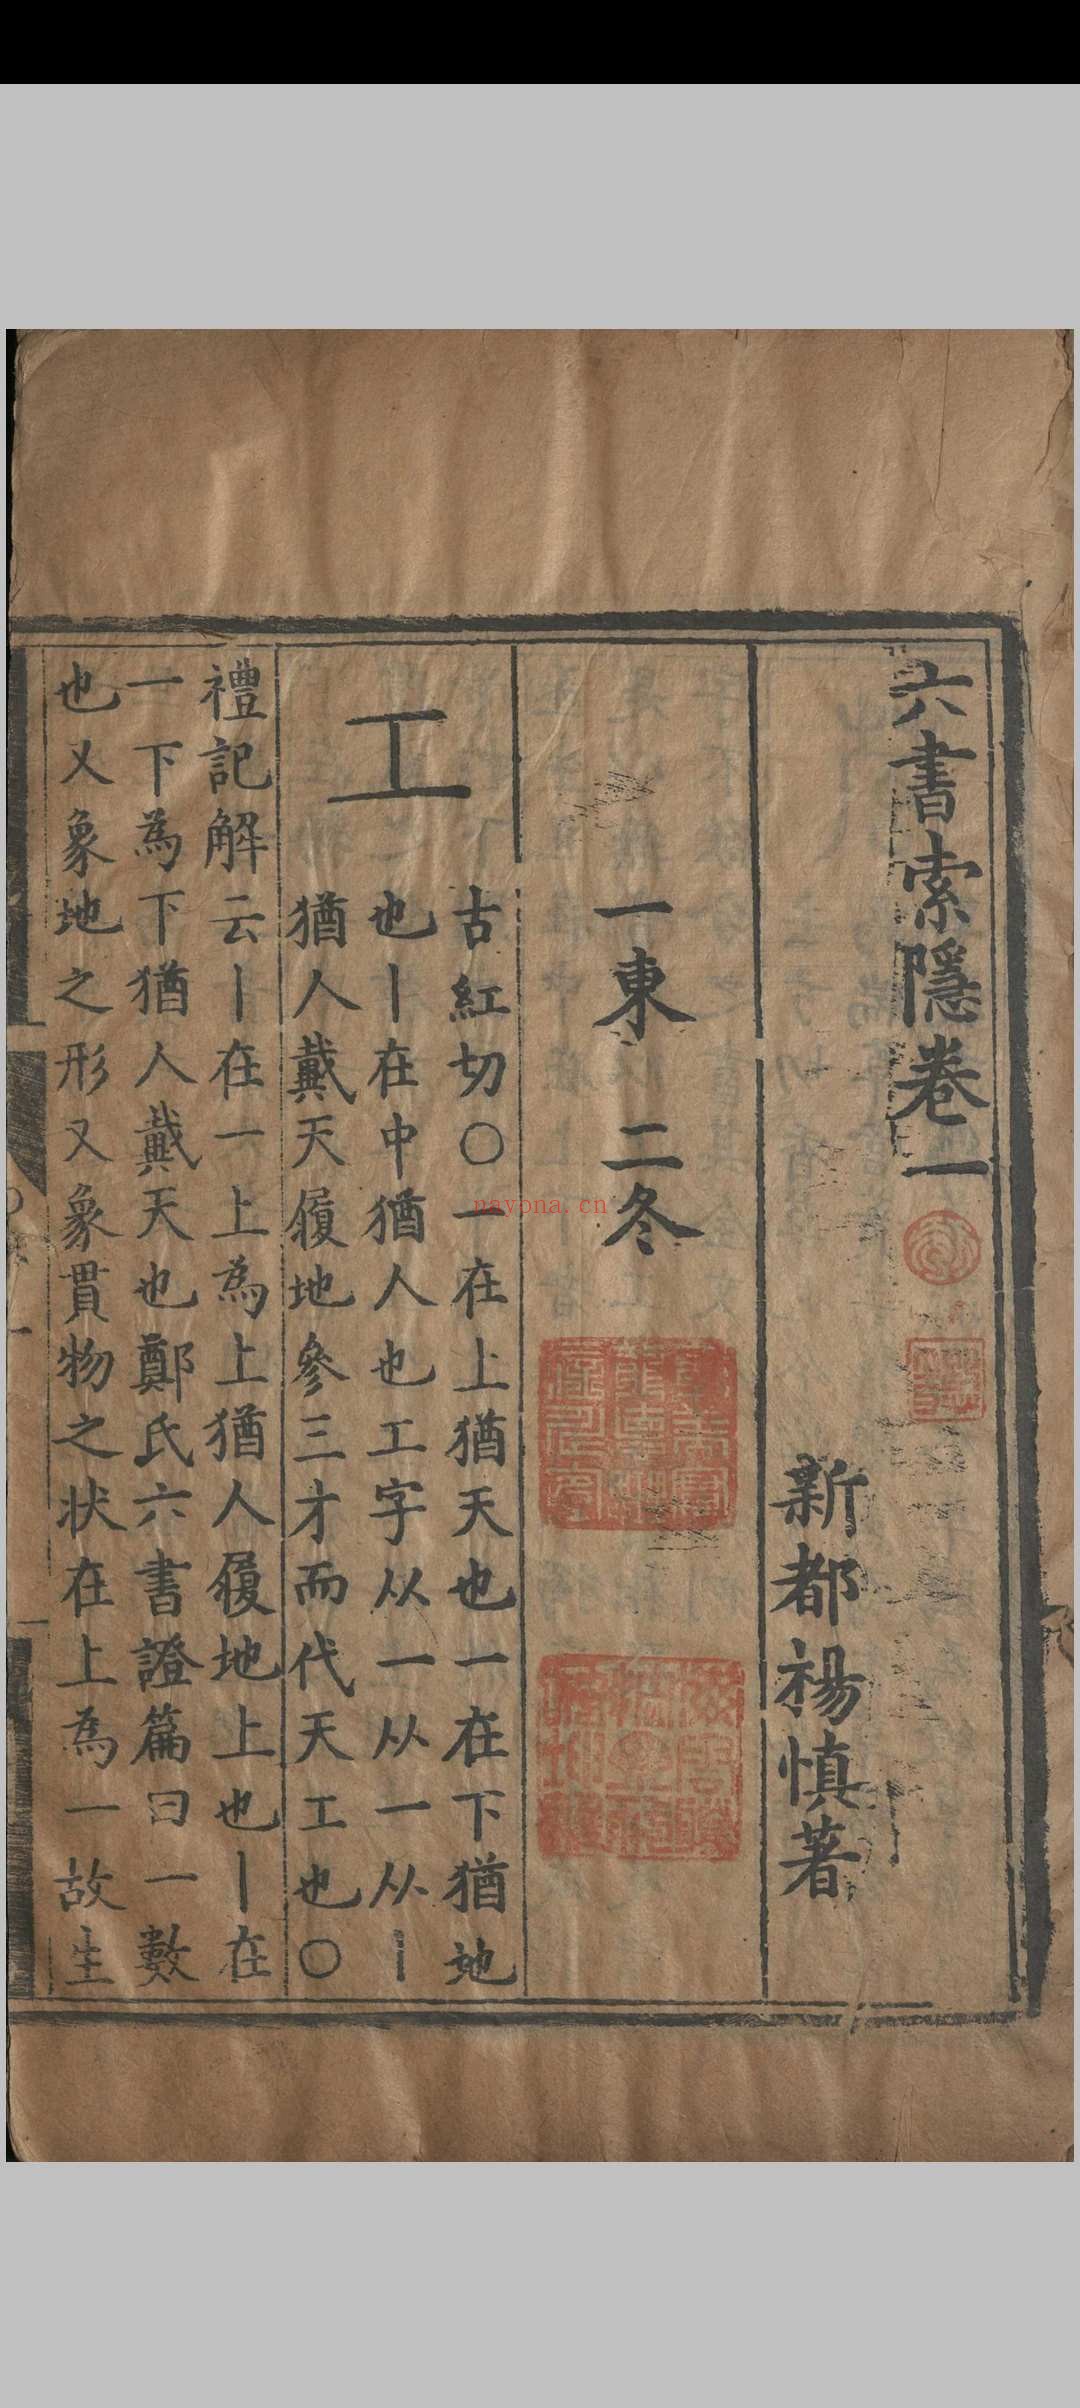 六書索隱卷一
新都楊慎著
一東 二冬
工
古紅切〇一在上猶天也一在下猶地
也丨在中猶人也工字从一从一从丨
猶人戴天履地參三才而代天工也〇
禮記解云丨在一上為上猶人履地上也丨在
一下為下猶人戴天也鄭氏六書證篇曰一數
也又象地之形又象貫物之状在上為一故生
nayona.cn